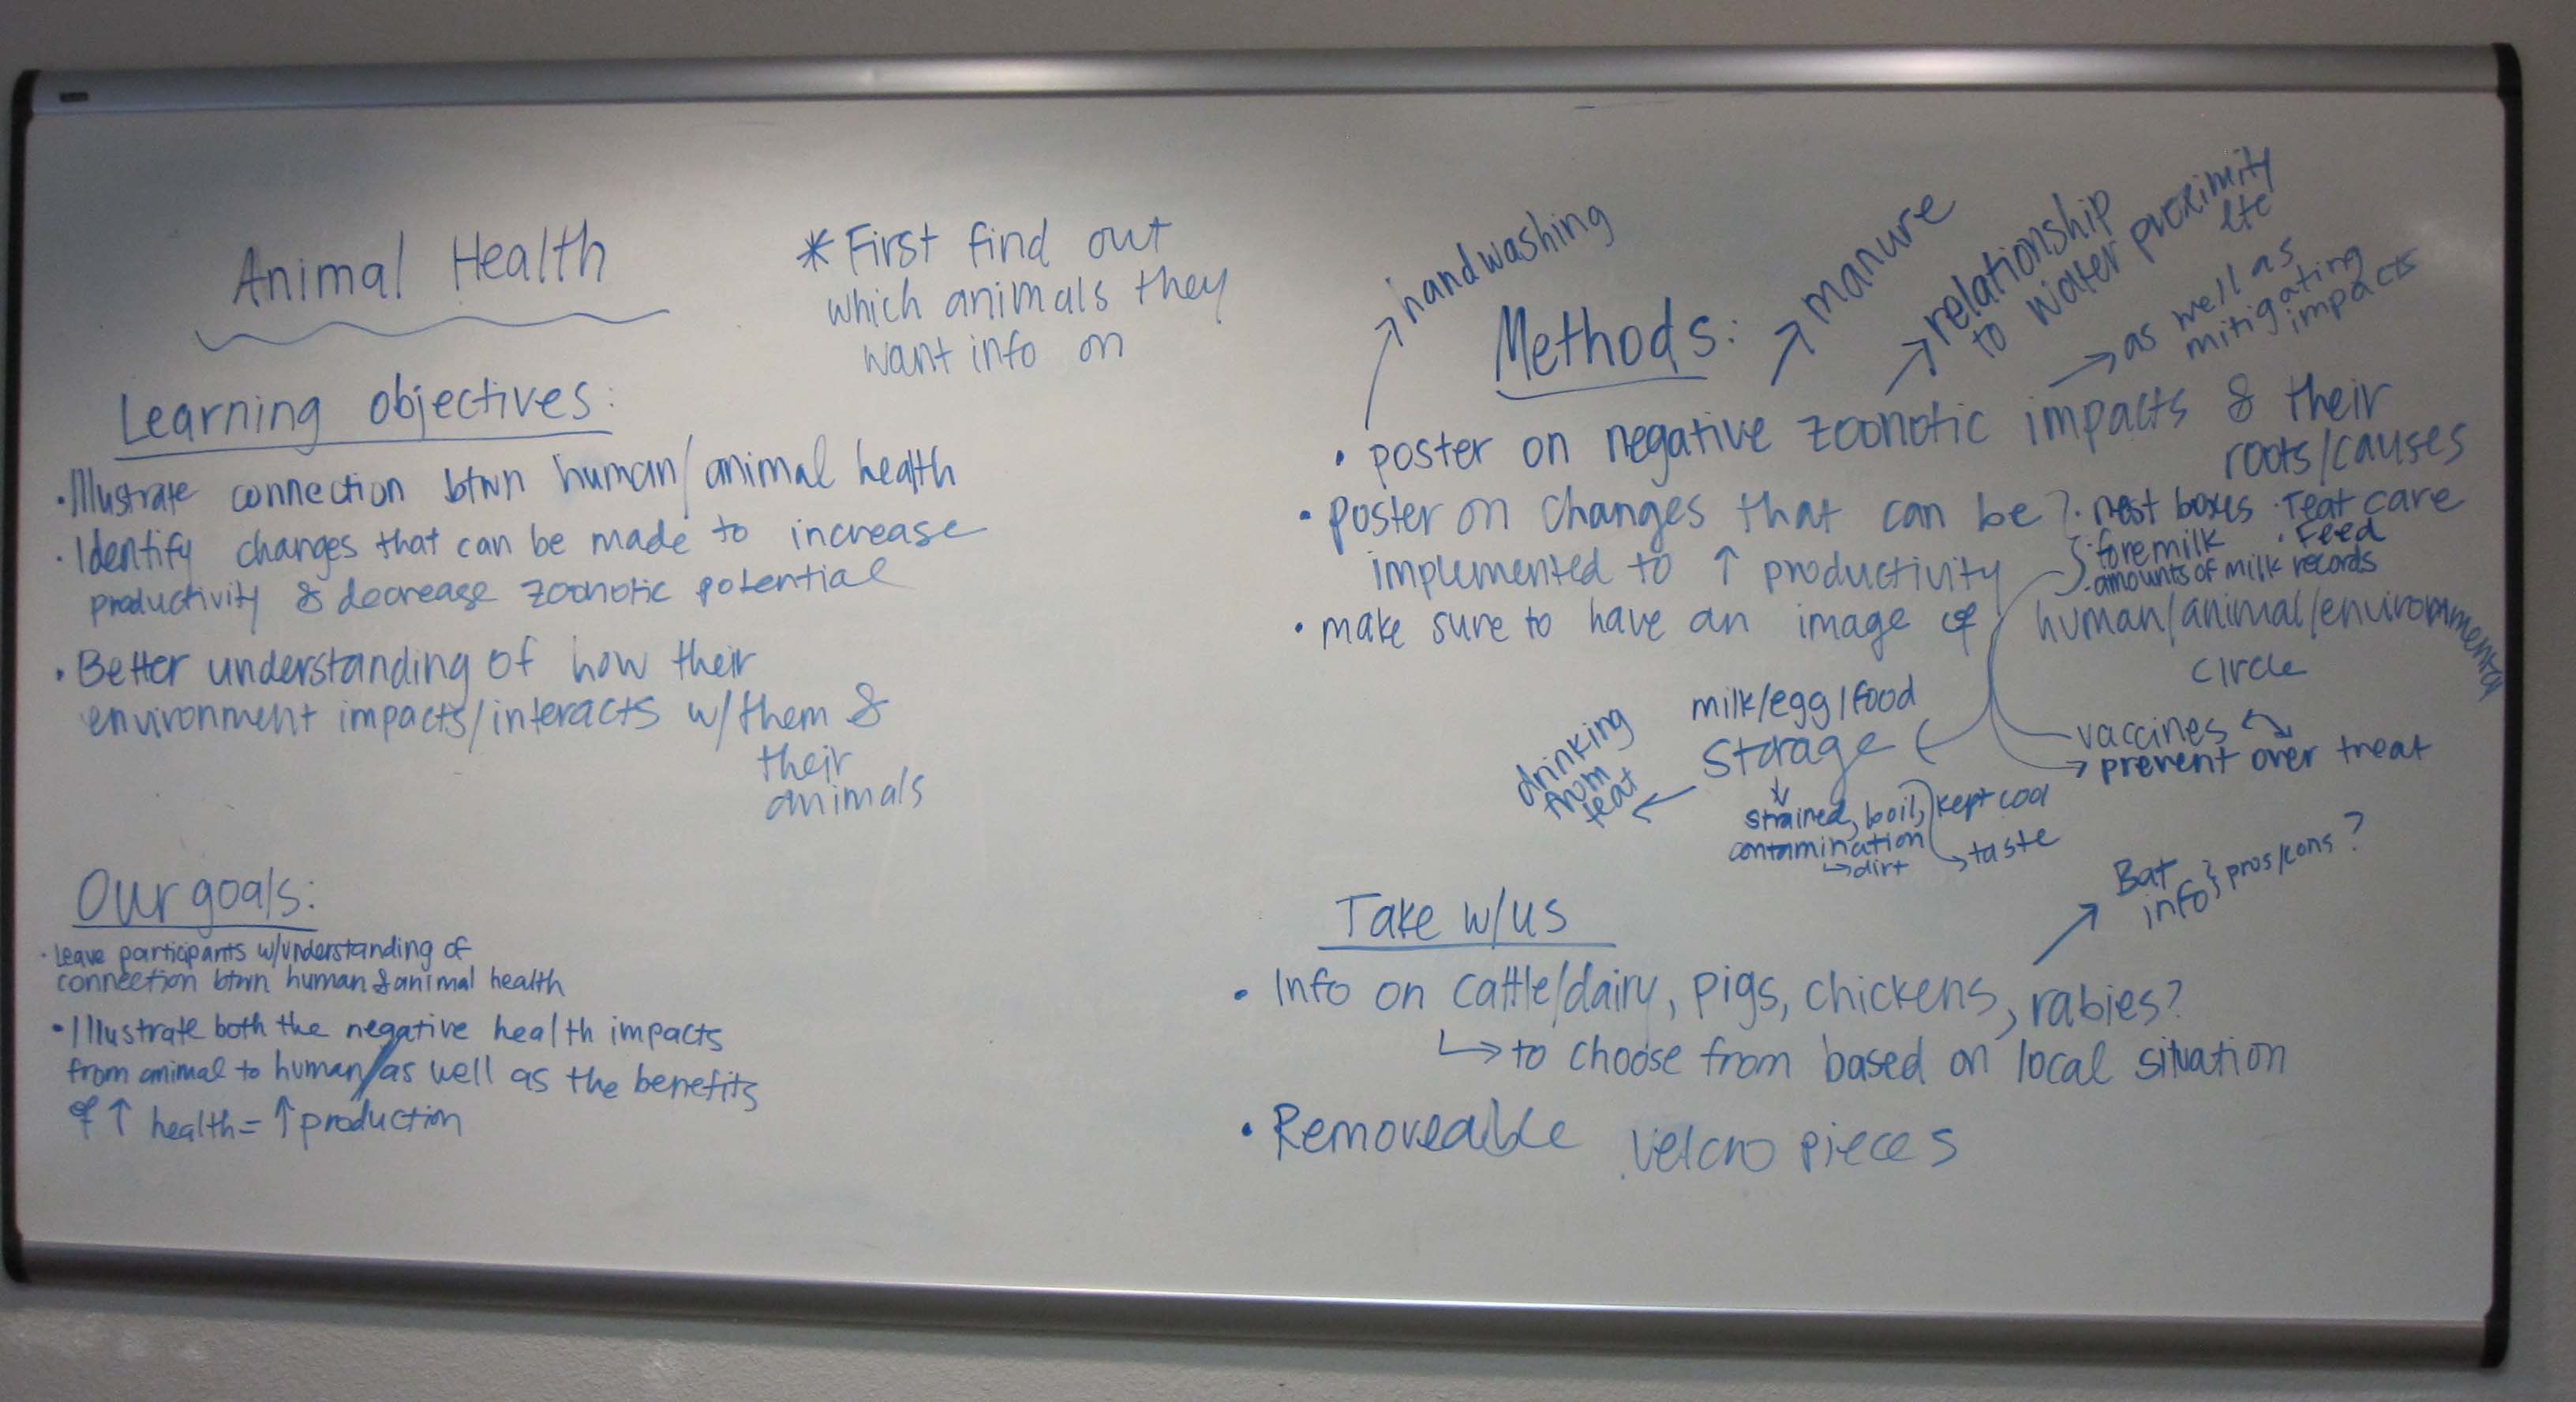 Animal Health
* First find out
which animals they
want info on
Learning objectives:
· Illustrate connection btwn human/animal health
· Identify changes that can be made to increase
productivity & decrease zoonotic potential
· Better understanding of how their
environment impacts/interacts w/them &
their
animals
Our goals:
· Leave participants w/understanding of
connection btwn human & animal health
· Illustrate both the negative health impacts
from animal to human/as well as the benefits
of ↑ health = ↑ production
Methods:
→ handwashing
→ manure
→ relationship
to water proximity
etc
→ as well as
mitigating
impacts
· poster on negative zoonotic impacts & their
roots/causes
· poster on changes that can be
implemented to ↑ productivity
· nest boxes · Teat care
· foremilk · Feed
· amounts of milk records
· make sure to have an image of human/animal/environmental
circle
milk/egg/food
storage
drinking
from
teat
strained, boil, kept cool
contamination
↳ dirt
↳ taste
vaccines
→ prevent over treat
Take w/us
· Info on cattle/dairy, pigs, chickens, rabies?
↳ to choose from based on local situation
→ Bat
info } pros/cons?
· Removeable velcro pieces